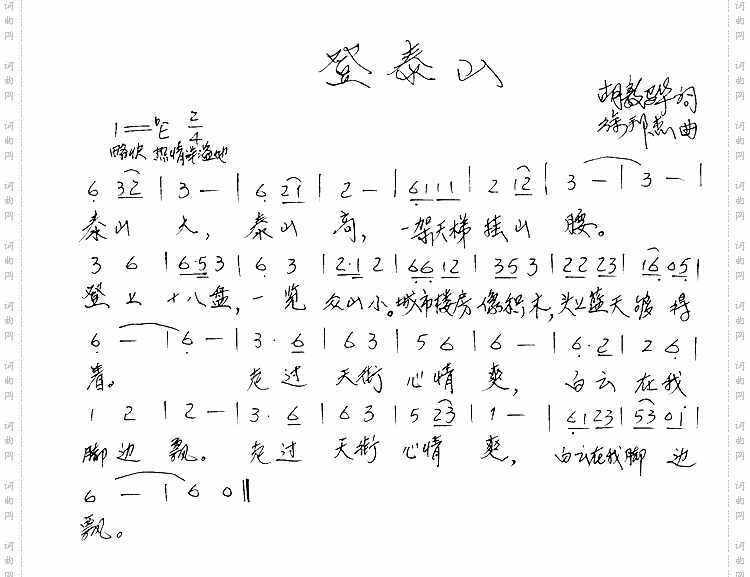 登泰山
词曲网
胡敦骅 词
徐邦杰 曲
1=♭E 2/4
略快 热情洋溢地
6 32 | 3 — | 6 21 | 2 — | 6111 | 2 12 | 3 — | 3 — |
泰山 大， 泰山 高， 一架天梯 挂山 腰。
3 6 | 6·53 3 | 6 3 | 2·1 2 | 6612 | 353 | 22 23 | 16 05 |
登上 十八盘，一览 众山小。城市楼房像积木，头上蓝天够得
6 — | 6 — | 3· 6 | 6 3 | 5 6 | 6 — | 6·2 | 2 6 |
着。 走过 天街 心情 爽， 白云 在我
1 2 | 2 — | 3· 6 | 6 3 | 5 23 | 1 — | 6123 | 53 01 |
脚边 飘。 走过 天街 心情 爽， 白云在我脚 边
6 — | 6 0 ‖
飘。